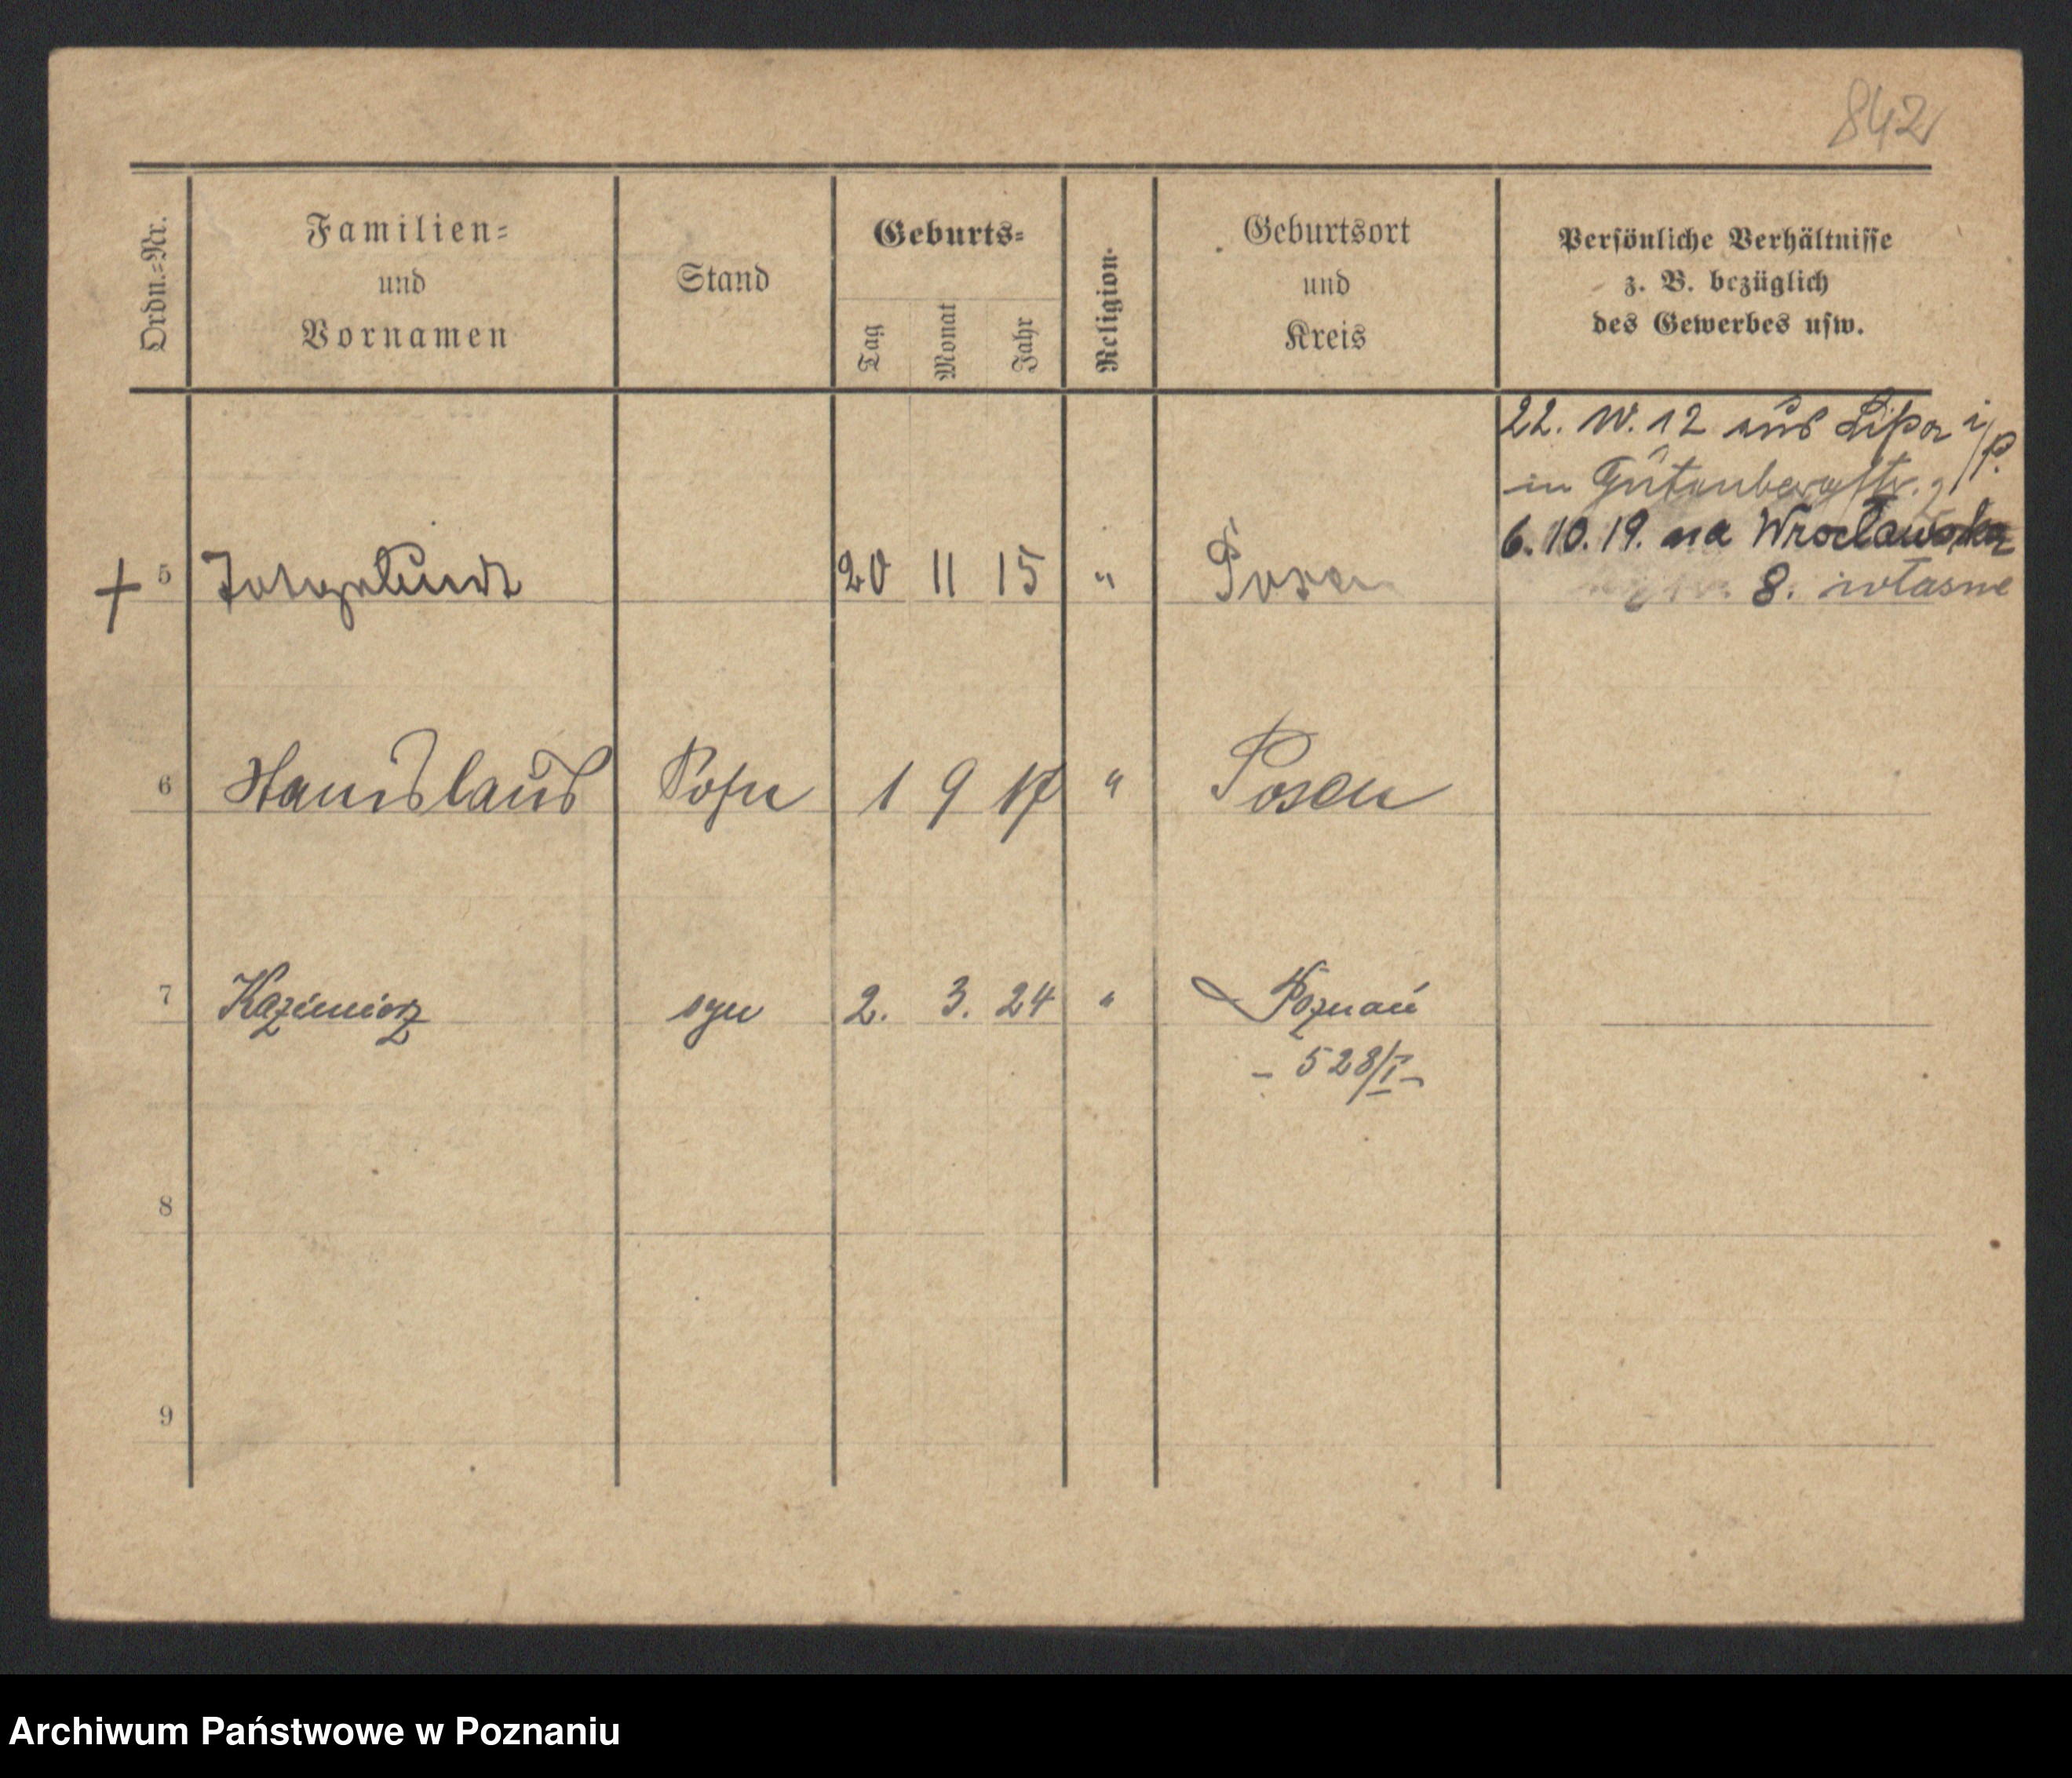 842
Ordn.-Nr.
Familien-
und
Vornamen
Stand
Geburts-
Tag
Monat
Jahr
Religion.
Geburtsort
und
Kreis
Persönliche Verhältnisse
z. B. bezüglich
des Gewerbes usw.
22. IV. 12 aus Lipa i/P.
in Gutenbergstr.
6. 10. 19. na Wrocławska
8. własne
5 20 11 15 " Posen
6 Stanislaus Sohn 1 9 17 " Posen
7 Kazimierz syn 2. 3. 24 " Poznań
- 528/I -
8
9
Archiwum Państwowe w Poznaniu